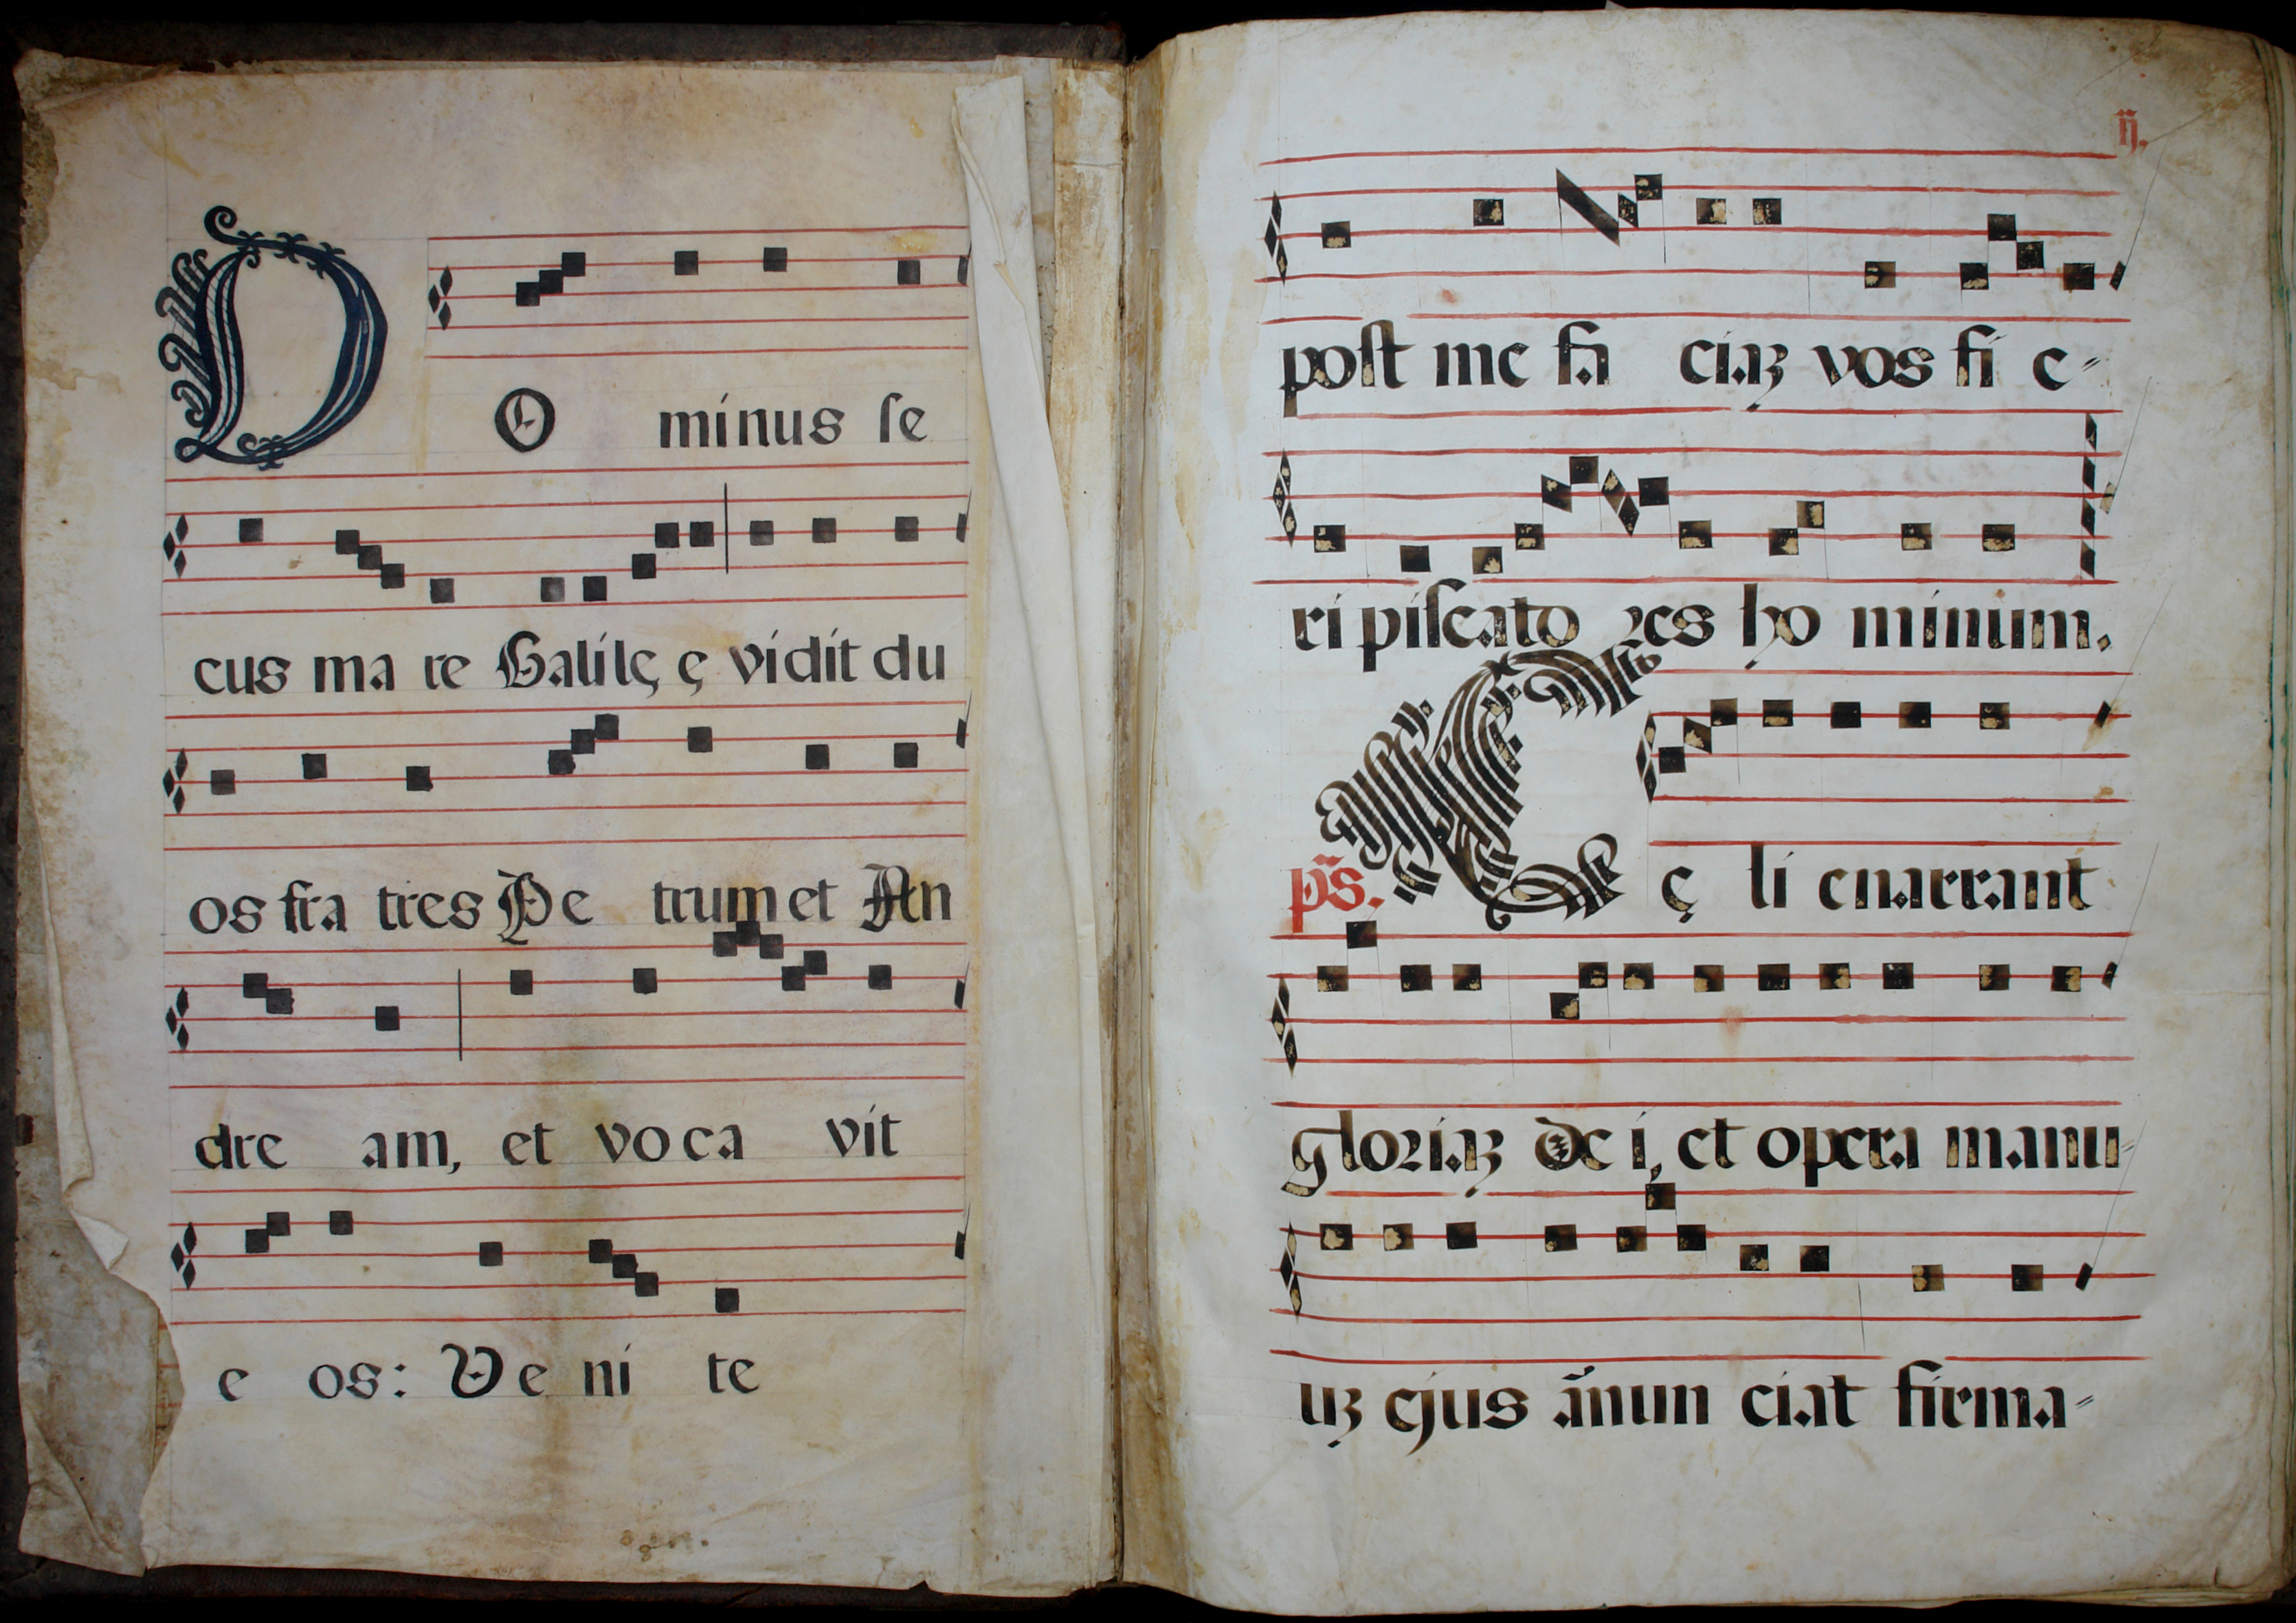 DO minus ſe
cus ma re Galilę ę vidit du
os fra tres Pe trum et An
dre am, et vo ca vit
e os: Ve ni te
ij.
poſt me fa ciaꝫ vos fi e⸗
ri piſcato ꝛes ho minum.
ps̃. Cę li enarrant
gloꝛiaꝫ De i, et opera manu⸗
uꝫ ejus ãnun ciat firma⸗